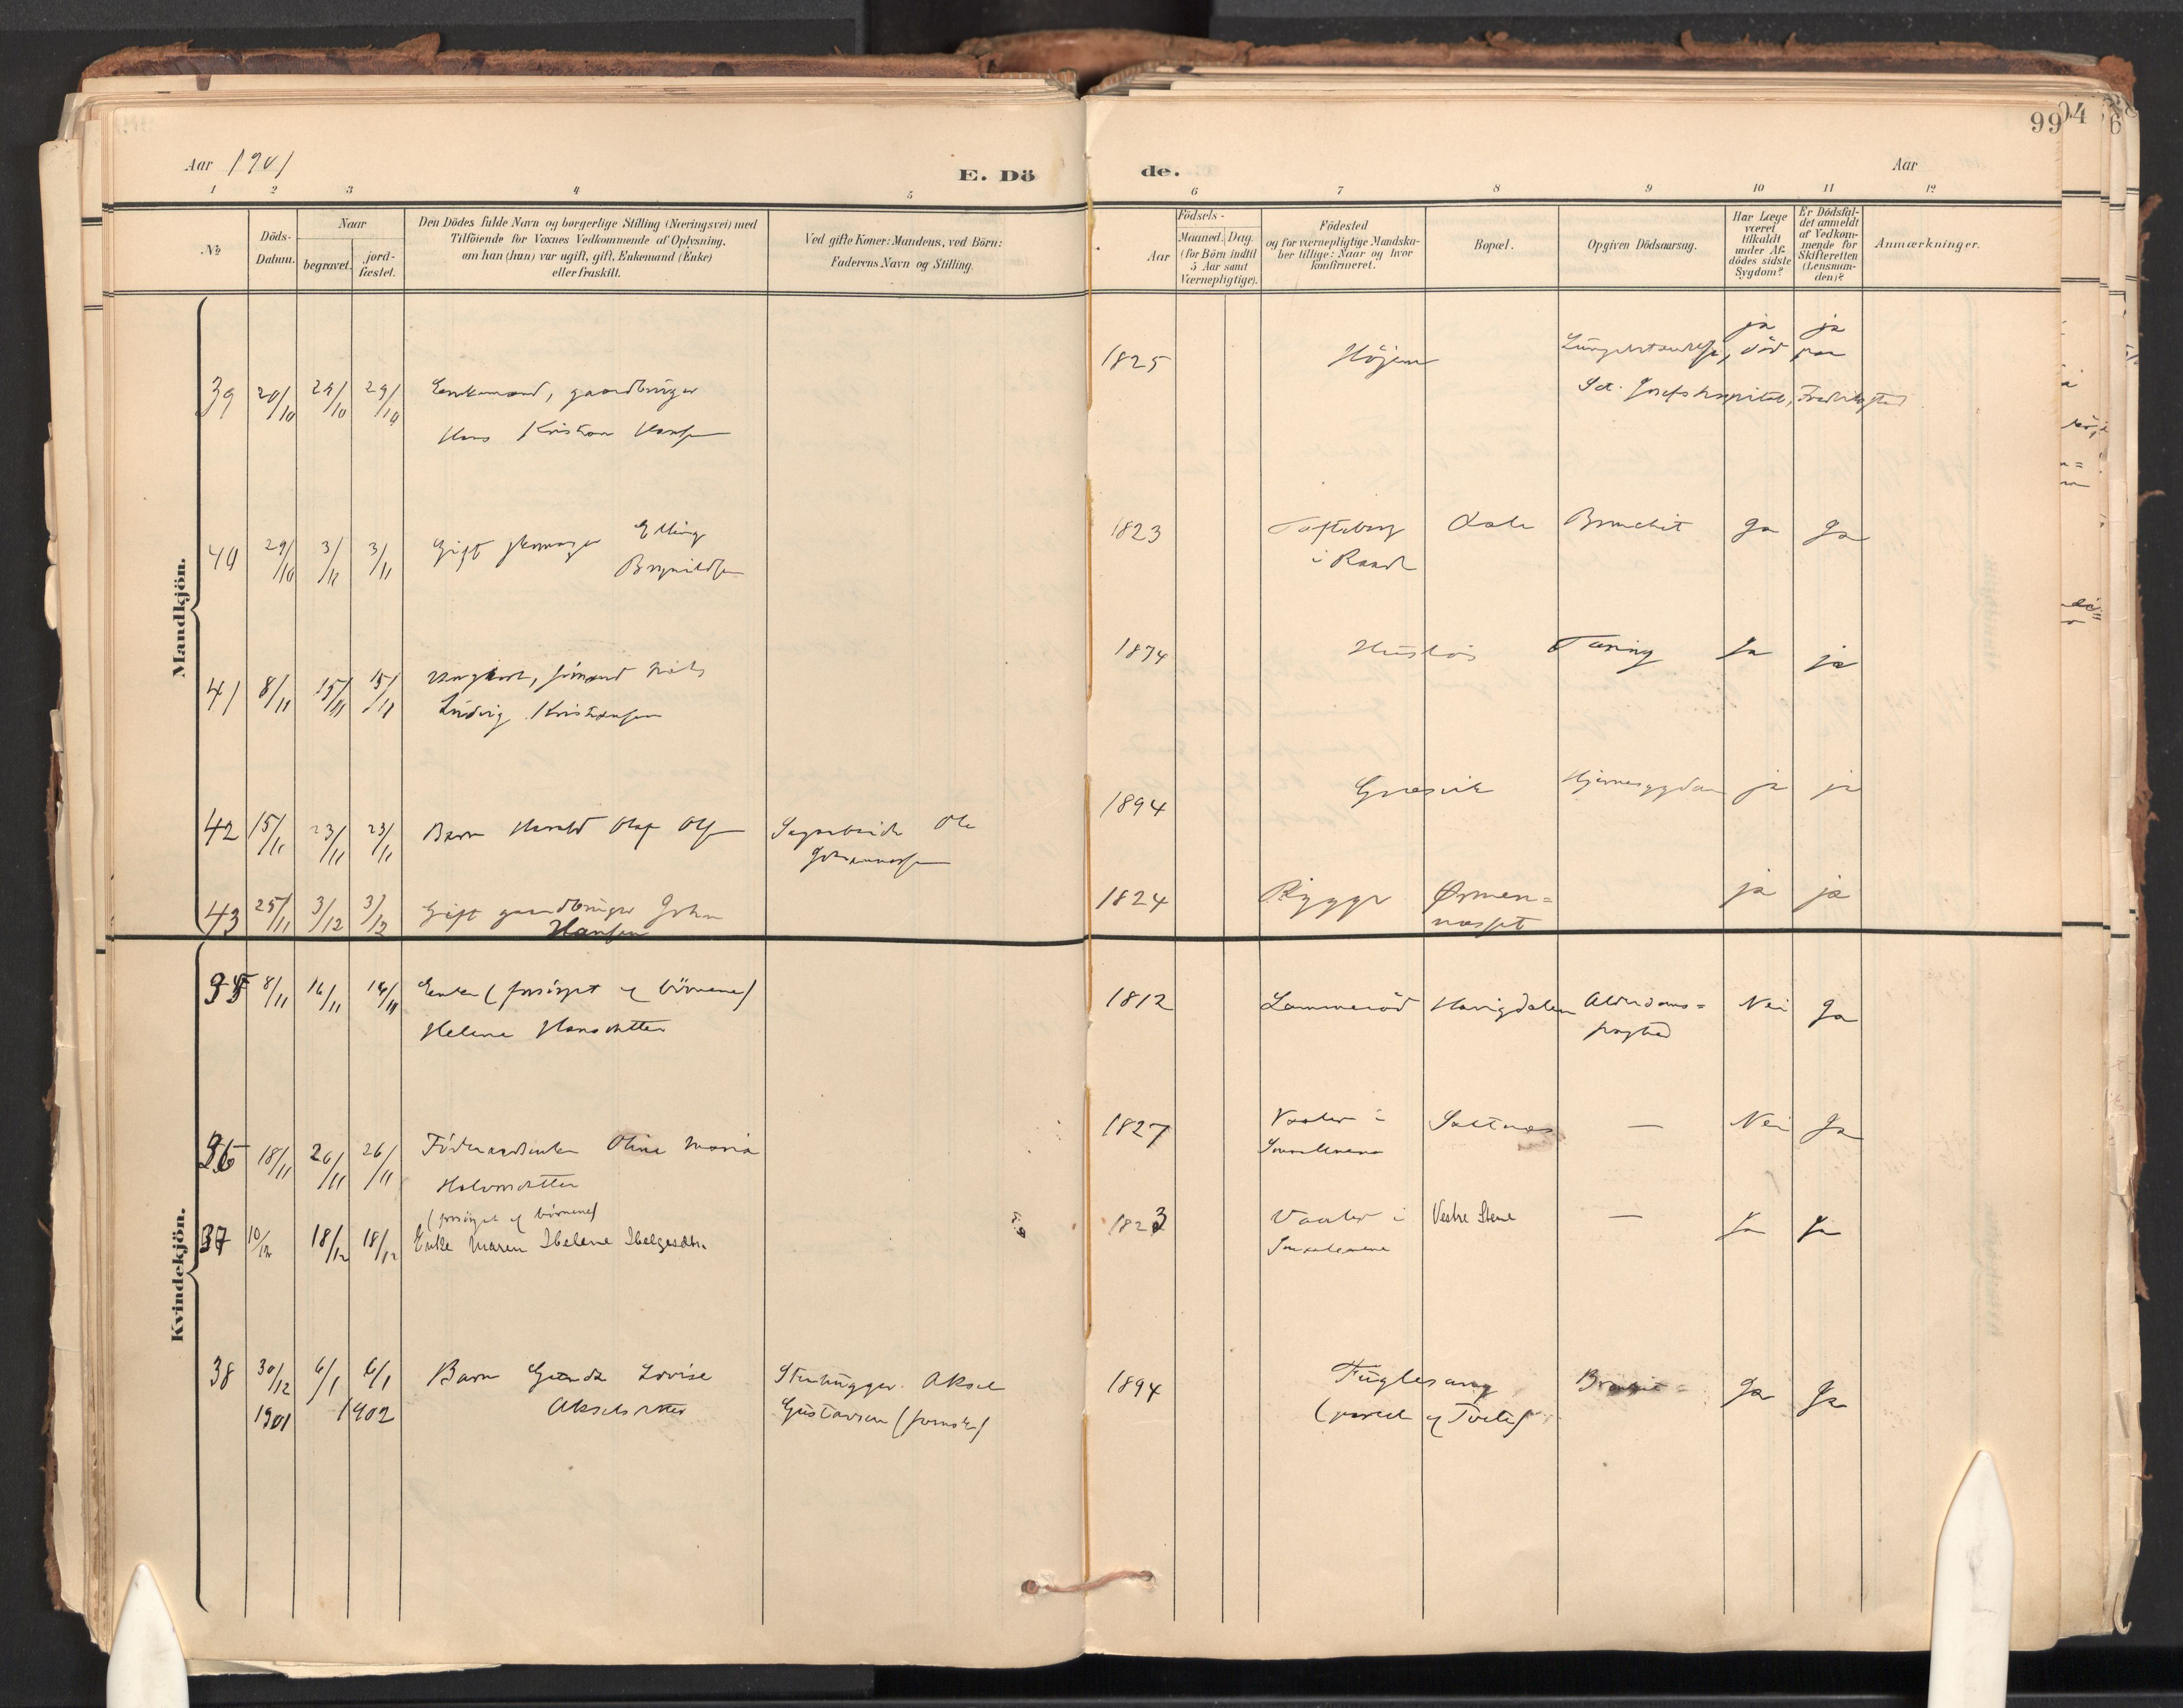 Aar 1901
E. Dö
de.
Aar
99
04
6
1 2 3 4 5 6 7 8 9 10 11 12
No
Döds-
Datum.
Naar
begravet.
jord-
fæstet.
Den Dödes fulde Navn og borgerlige Stilling (Næringsvei) med
Tilföiende for Voxnes Vedkommende af Oplysning,
om han (hun) var ugift, gift, Enkemand (Enke)
eller fraskilt.
Ved gifte Koner: Mandens, ved Börn:
Faderens Navn og Stilling.
Födsels-
Aar
Maaned. Dag.
(for Börn indtil
5 Aar samt
Værnepligtige).
Födested
og for værnepligtige Mandska-
ber tillige: Naar og hvor
konfirmeret.
Bopæl.
Opgiven Dödsaarsag.
Har Læge
været
tilkaldt
under Af-
dödes sidste
Sygdom?
Er Dödsfal-
det anmeldt
af Vedkom-
mende for
Skifteretten
(Lensman-
den)?
Anmærkninger.
Mandkjön.
39 20/10 29/10 29/10 Enkemand, gaardbruger
Hans Kristian Hansen
1825 Höjum ja ja
Lungebetændelse, död paa
Sct. Josefs hospital, Fredrikstad
40 29/10 3/11 3/11 Gift Elling
Brynildsen
1823 Tofteberg Dale Bronchit Ja Ja
i Raade
41 8/11 15/11 15/11 Ungkarl, sömand Niels
Ludvig Kristiansen
1874 Husløs Tæring Ja ja
42 15/11 23/11 23/11 Barn Harald Olaf Olsen Sagarbeider Ole
Johannessen
1894 Græsvik Hjernesygdom ja ja
43 25/11 3/12 3/12 Gift gaardbruger Johan
Hansen
1824 Rygge Ørmen=
næsset ja ja
Kvindekjön.
35 8/11 16/11 16/11 Enke (forsörget af börnene)
Helene Hansdatter
1812 Lammeröd Harigdalen Alderdoms= Nei Ja
svaghed
36 18/11 26/11 26/11 Föderaadsenke Oline Maria
Halvorsdatter
1827 Vaaler i Saltnæs — Nei Ja
Smaalenene
(forsörget af börnene)
37 10/12 18/12 18/12 Enke Maren Helene Helgesdtr.
1823 Vaaler i Vestre Stene — Ja Ja
Smaalenene
38 30/12 6/1 6/1 Barn Gunda Lovise Stenhugger Aksel
1901 1902 Akselsdatter Gustavsen (svensk)
1894 Fuglesang Ja Ja
(parcel af Tveter)